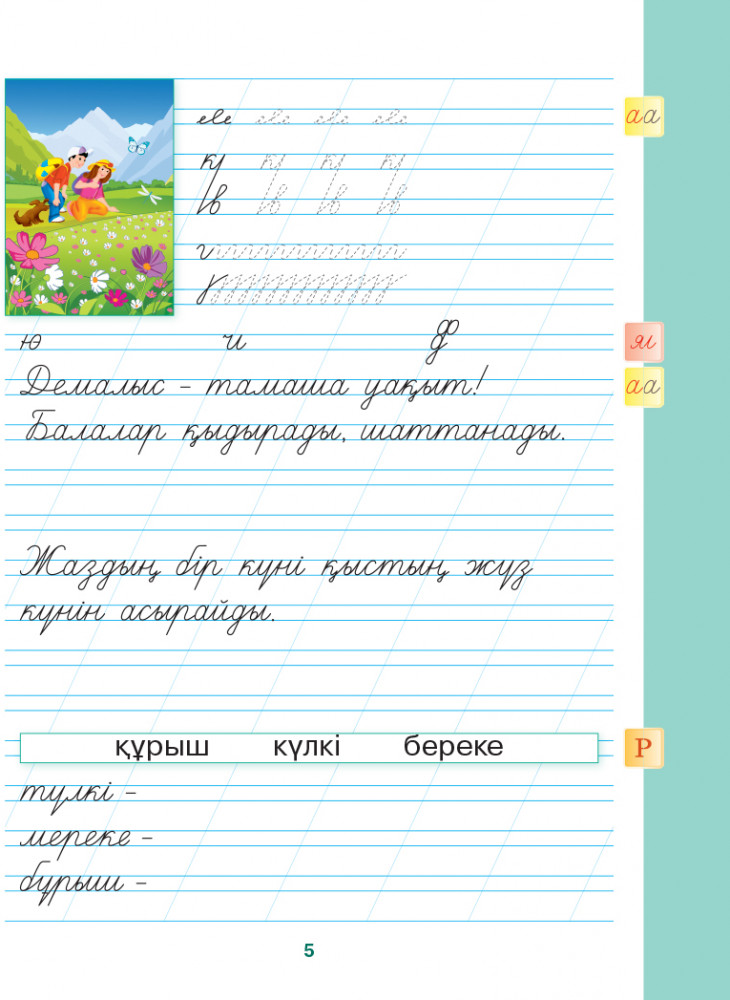 аа
ю и ф
ял
Демалыс – тамаша уақыт!
аа
Балалар қыдырады, шаттанады.
Жаздың бір күні қыстың жүз
күнін асырайды.
құрыш күлкі береке
Р
түлкі –
мереке –
бұрыш –
5